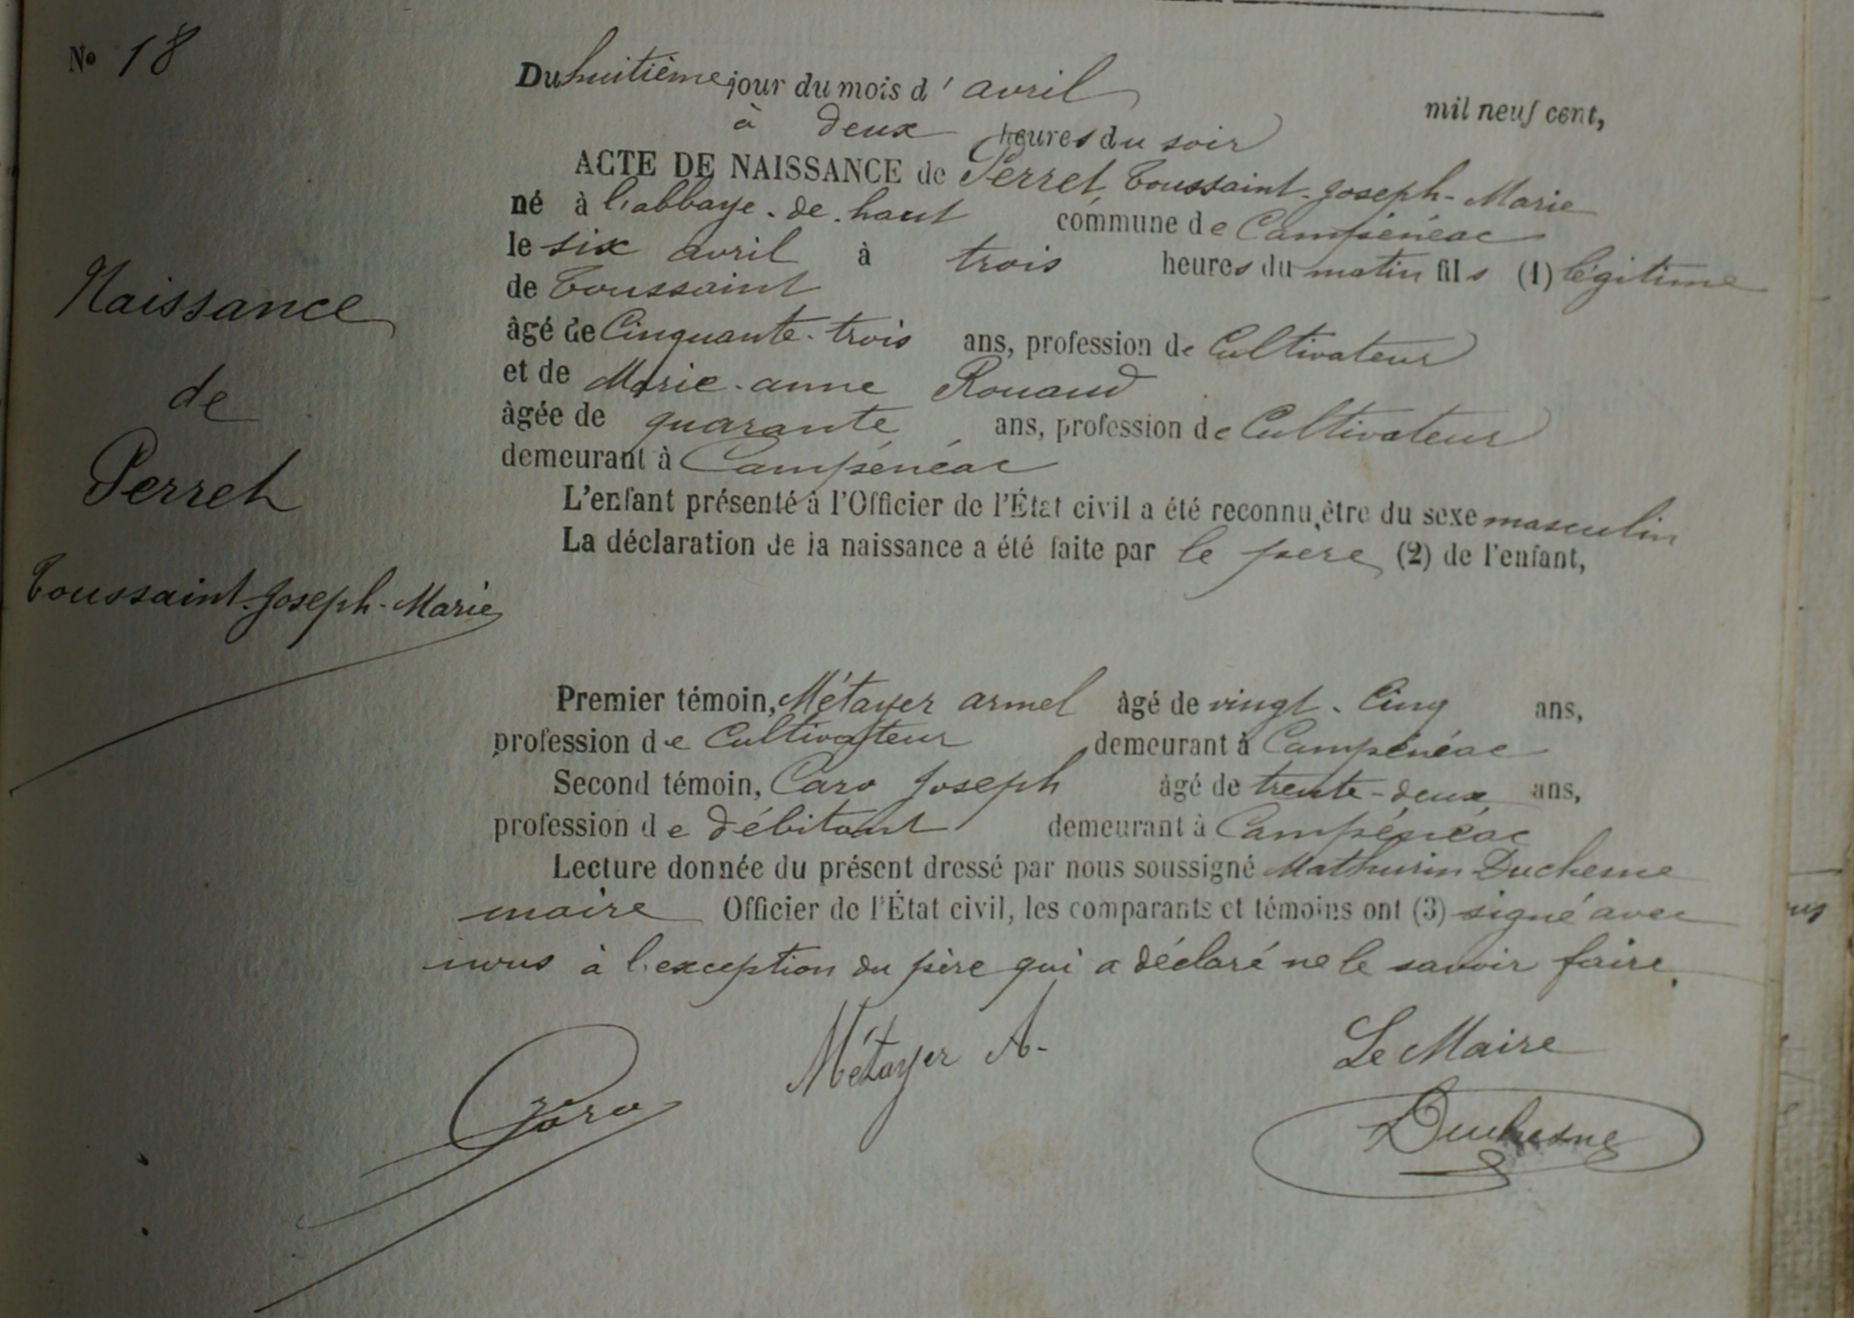 No 18
Du huitième jour du mois d'avril mil neuf cent,
à deux heures du soir
ACTE DE NAISSANCE de Perret Toussaint-Joseph-Marie
né à l'abbaye-de-haut commune de Campénéac
le six avril à trois heures du matin fils (1) légitime
de Toussaint
âgé de Cinquante-trois ans, profession de Cultivateur
et de Marie-anne Rouaud
âgée de quarante ans, profession de Cultivateur
demeurant à Campénéac
L'enfant présenté à l'Officier de l'État civil a été reconnu être du sexe masculin
La déclaration de la naissance a été faite par le père (2) de l'enfant,
Naissance
de
Perret
Toussaint-Joseph-Marie
Premier témoin, Métayer armel âgé de vingt-Cinq ans,
profession de Cultivateur demeurant à Campénéac
Second témoin, Caro Joseph âgé de trente-deux ans,
profession de débitant demeurant à Campénéac
Lecture donnée du présent dressé par nous soussigné Mathurin Duchesne
maire Officier de l'État civil, les comparants et témoins ont (3) signé avec
nous à l'exception du père qui a déclaré ne le savoir faire.
Caro Métayer A. Le Maire
Duchesne